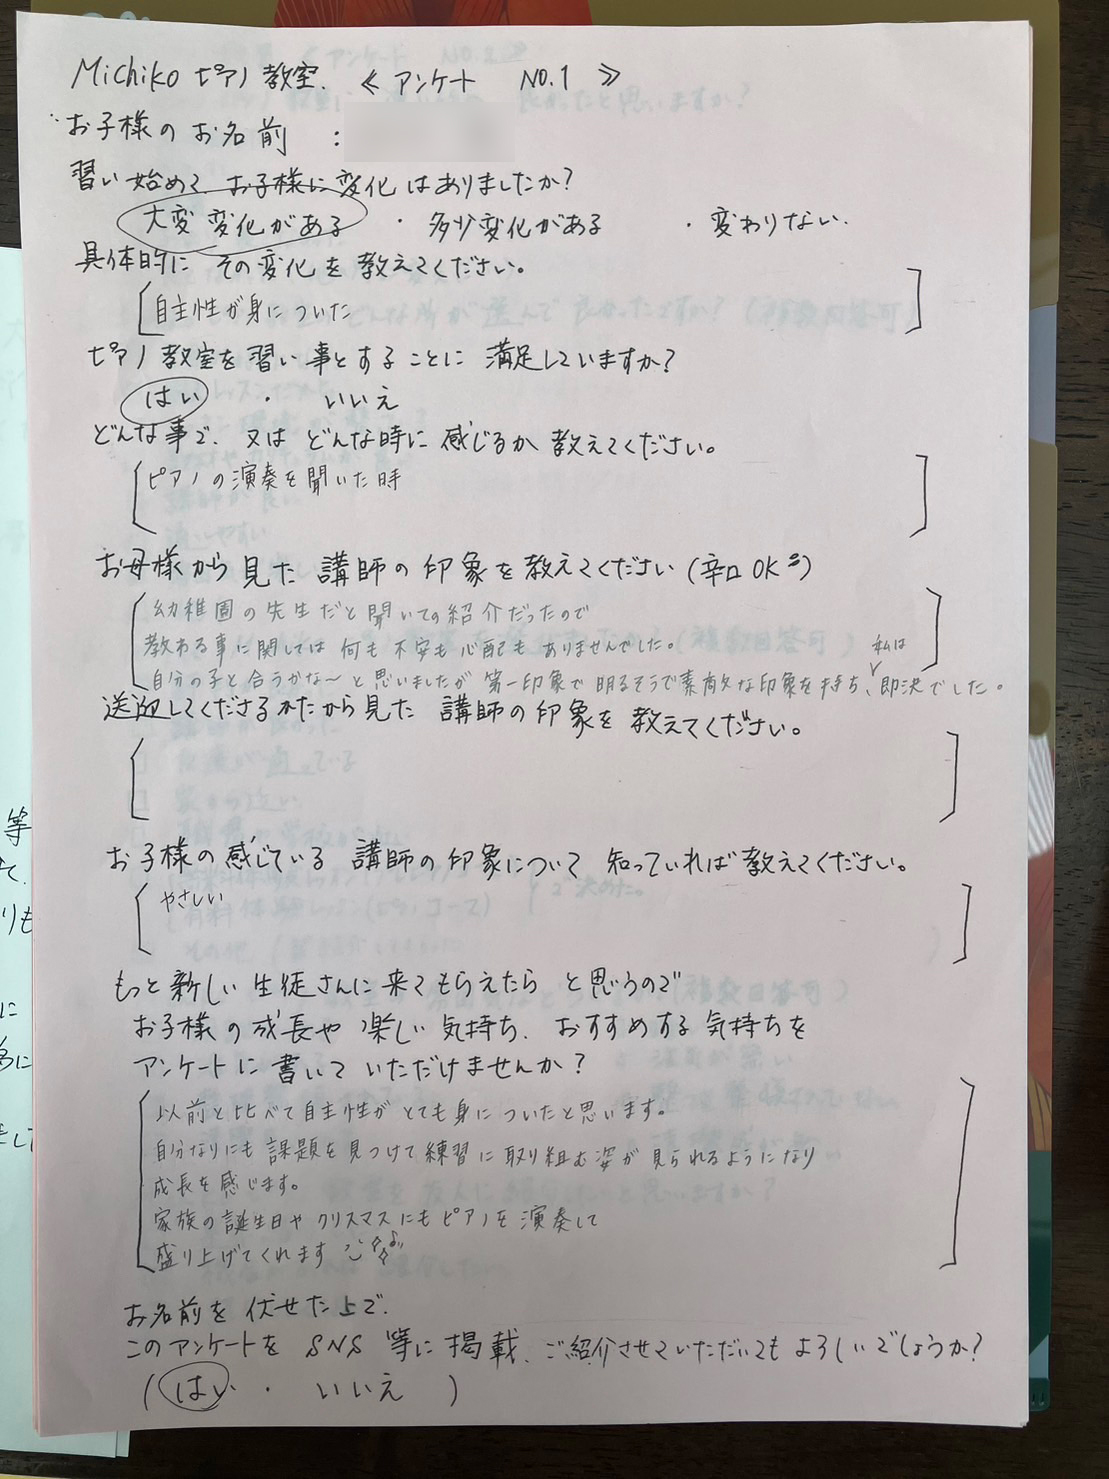 Michiko ピアノ教室. 《 アンケート NO.1 》
お子様の お名前 :
習い始めて お子様に変化はありましたか?
大変 変化がある ・ 多少変化がある ・ 変わりない.
具体的に その変化を 教えてください。
自主性が身についた
ピアノ教室を習い事とすることに 満足していますか?
はい ・ いいえ
どんな事で、又は どんな時に 感じるか 教えてください。
ピアノの演奏を聞いた時
お母様から見た 講師の印象を教えてください (辛口OK)
幼稚園の先生だと聞いての紹介だったので
教わる事に関しては 何も不安も心配も ありませんでした。
自分の子と合うかな〜と思いましたが 第一印象で 明るそうで素敵な印象を持ち、私は即決でした。
送迎してくださるかたから見た 講師の印象を 教えてください。
お子様の感じている 講師の印象について 知っていれば教えてください。
やさしい
もっと新しい 生徒さんに来てもらえたら と思うので
お子様の成長や 楽しい気持ち、おすすめする気持ちを
アンケートに書いて いただけませんか?
以前と比べて自主性が とても身についたと思います。
自分なりにも 課題を見つけて練習に取り組む姿が 見られるようになり
成長を感じます。
家族の誕生日や クリスマスにもピアノを演奏して
盛り上げてくれます
お名前を 伏せた上で、
このアンケートを SNS 等に掲載、ご紹介させていただいてもよろしいでしょうか?
( はい ・ いいえ )